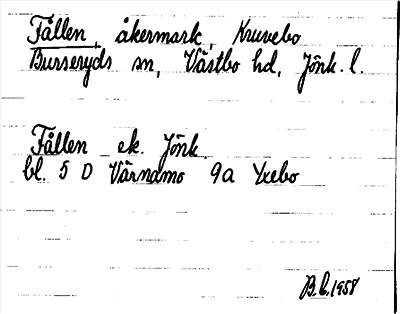 Fållen, åkermark, Kruvebo
Burseryds sn, Västbo hd, Jönk. l.
Fållen ek. Jönk.
bl. 5 D Värnamo 9a Yxebo
B.b. 1958